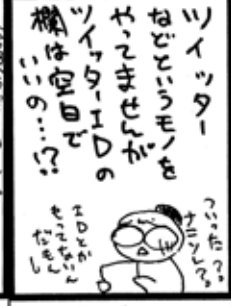 ツイッター
などというモノを
やってませんが
ツイッターIDの
欄は空白で
いいの…!?
ついった?
ナニソレ?。
IDとか
もってないん
だもん